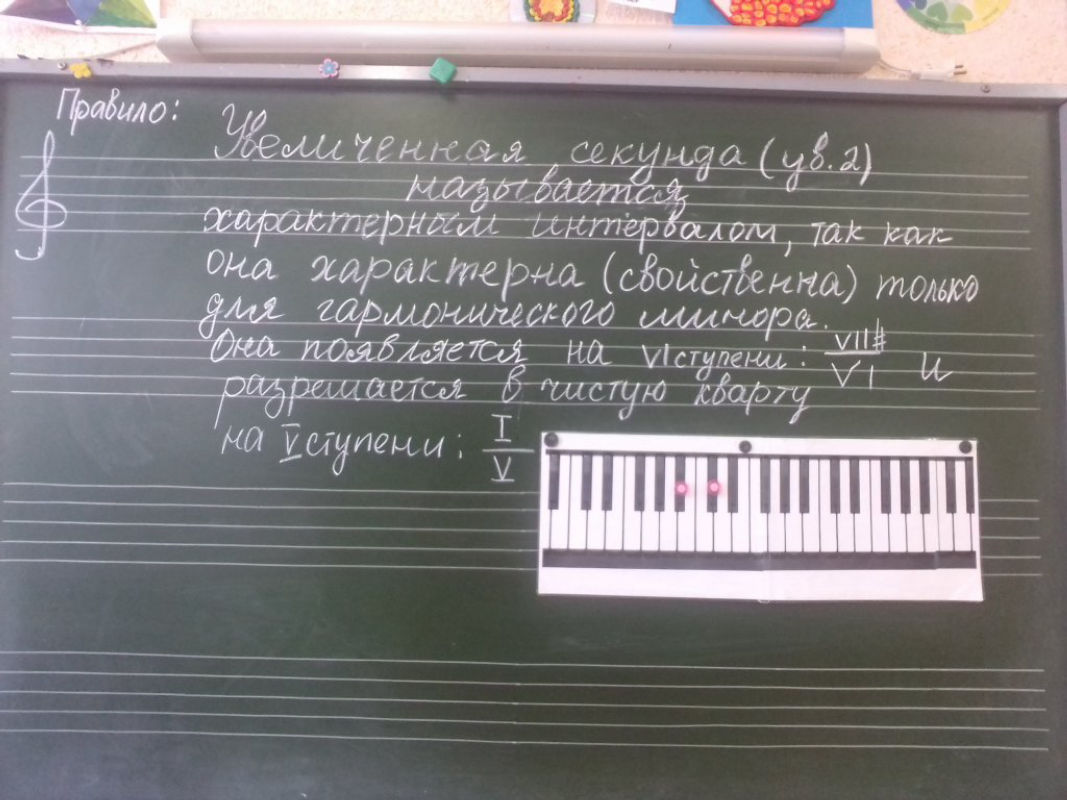 Правило:
Увеличенная секунда (ув.2)
называется
характерным интервалом, так как
она характерна (свойственна) только
для гармонического минора.
Она появляется на VI ступени: VII#/VI и
разрешается в чистую кварту
на V ступени: I/V